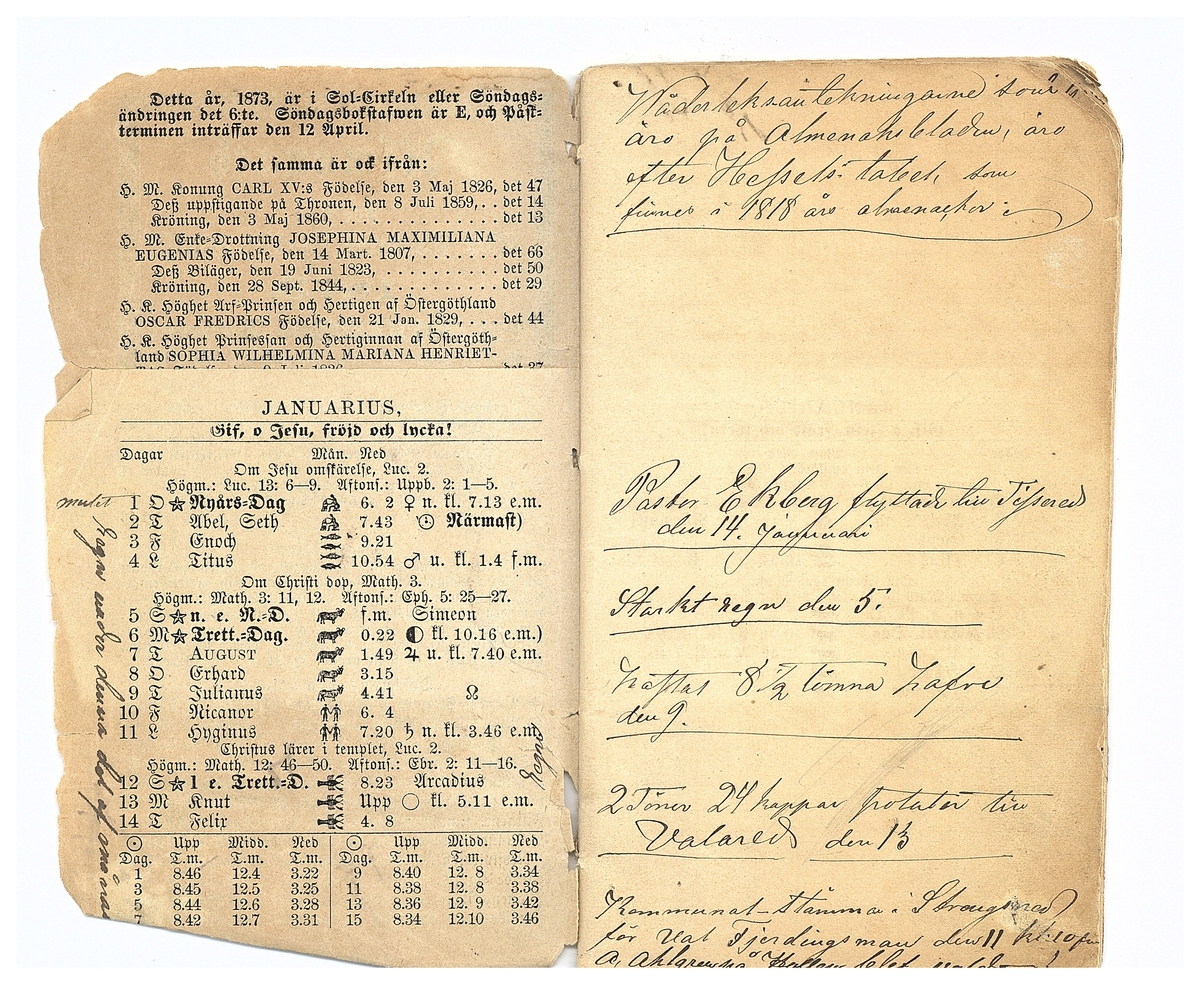 Detta år, 1873, är i Sol-Cirkeln eller Söndags-
ändringen det 6:te. Söndagsbokstafwen är E, och Påsk-
terminen inträffar den 12 April.
Det samma är ock ifrån:
H. M. Konung CARL XV:s Födelse, den 3 Maj 1826, det 47
Deß uppstigande på Thronen, den 8 Juli 1859, . . det 14
Kröning, den 3 Maj 1860, . . . . . . . . . . . . det 13
H. M. Enke-Drottning JOSEPHINA MAXIMILIANA
EUGENIAS Födelse, den 14 Mart. 1807, . . . . . . . . det 66
Deß Biläger, den 19 Juni 1823, . . . . . . . . . . det 50
Kröning, den 28 Sept. 1844, . . . . . . . . . . . det 29
H. K. Höghet Arf-Prinsen och Hertigen af Östergöthland
OSCAR FREDRICS Födelse, den 21 Jan. 1829, . . . det 44
H. K. Höghet Prinsessan och Hertiginnan af Östergöth-
land SOPHIA WILHELMINA MARIANA HENRIET-
JANUARIUS,
Gif, o Jesu, fröjd och lycka!
Dagar Mån. Ned
Om Jesu omskärelse, Luc. 2.
Högm.: Luc. 13: 6—9. Aftons.: Uppb. 2: 1—5.
mulet 1 O Nyårs-Dag 6. 2 ♀ n. kl. 7.13 e.m.
2 T Abel, Seth 7.43 ☉ Närmast)
3 F Enoch 9.21
4 L Titus 10.54 ♂ u. kl. 1.4 f.m.
Om Christi dop, Math. 3.
Högm.: Math. 3: 11, 12. Aftons.: Eph. 5: 25—27.
5 S n. e. N.-D. f.m. Simeon
6 M Trett.-Dag. 0.22 ◐ kl. 10.16 e.m.)
7 T AUGUST 1.49 ♃ u. kl. 7.40 e.m.
8 O Erhard 3.15
9 T Julianus 4.41 ☊
10 F Nicanor 6. 4
11 L Hyginus 7.20 ♄ n. kl. 3.46 e.m.
Christus lärer i templet, Luc. 2.
Högm.: Math. 12: 46—50. Aftons.: Ebr. 2: 11—16.
12 S 1 e. Trett.-D. 8.23 Arcadius
13 M Knut Upp ○ kl. 5.11 e.m.
14 T Felix 4. 8
☉ Upp Midd. Ned ☉ Upp Midd. Ned
Dag. T.m. T.m. T.m. Dag. T.m. T.m. T.m.
1 8.46 12.4 3.22 9 8.40 12. 8 3.34
3 8.45 12.5 3.25 11 8.38 12. 8 3.38
5 8.44 12.6 3.28 13 8.36 12. 9 3.42
7 8.42 12.7 3.31 15 8.34 12.10 3.46
under denna del af
Väderleksantekningarne som
äro på Almenaksbladen, äro
efter Hessels talet, som
finnes i 1818 års almenackor
Pastor Ekberg flyttade till
den 14. januari
Starkt regn den 5.
8 1/2 tunna hafre
den 9.
2 Tunor 24 kappar potater till
Valared den 13
Kommunal-stämma i
för val Fjerdingsman den 11 kl: 10 fm